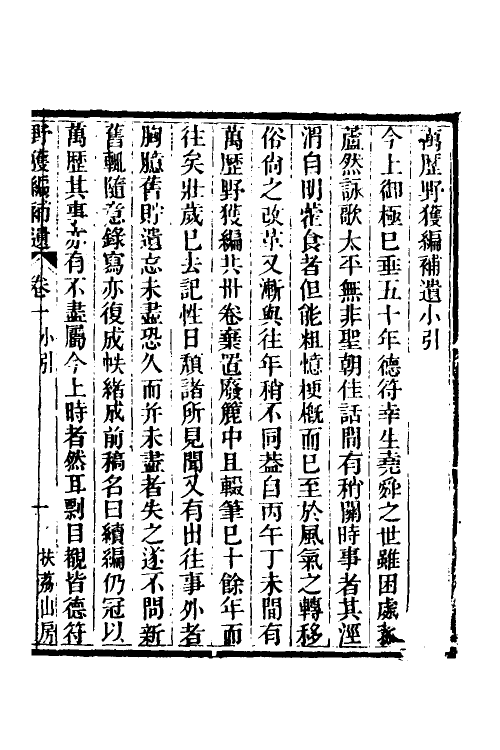 萬歷野獲編補遺小引
今上御極巳垂五十年德符幸生堯舜之世雖困處
蘆然詠歌太平無非聖朝佳話間有稍關時事者其涇
渭自明藿食者但能粗憶梗概而巳至於風氣之轉移
俗尙之改革又漸與往年稍不同葢自丙午丁未間有
萬歷野獲編共卅卷棄置廢簏中且輟筆巳十餘年而
往矣壯歲巳去記性日頹諸所見聞又有出往事外者
胸臆舊貯遺忘未盡恐久而幷未盡者失之遂不問新
舊輒隨意錄寫亦復成帙緒成前稿名曰續編仍冠以
萬歷其事亦有不盡屬今上時者然耳剽目覩皆德符
野獲編補遺 卷一 小引 一 扶荔山房